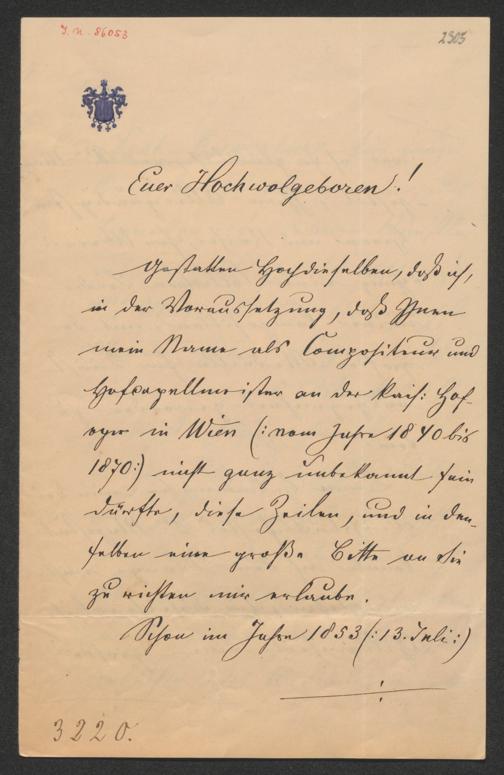 J. N. 86053
2303
Euer Hochwolgeboren!
Gestatten Hochdieselben, daß ich,
in der Voraussetzung, daß Ihnen
mein Name als Compositeur und
Hofcapellmeister an der kais: Hof-
oper in Wien (: vom Jahre 1840 bis
1870:) nicht ganz unbekannt sein
dürfte, diese Zeilen, und in den-
selben eine große Bitte an Sie
zu richten mir erlaube.
Schon im Jahre 1853 (: 13. Juli :)
3220.